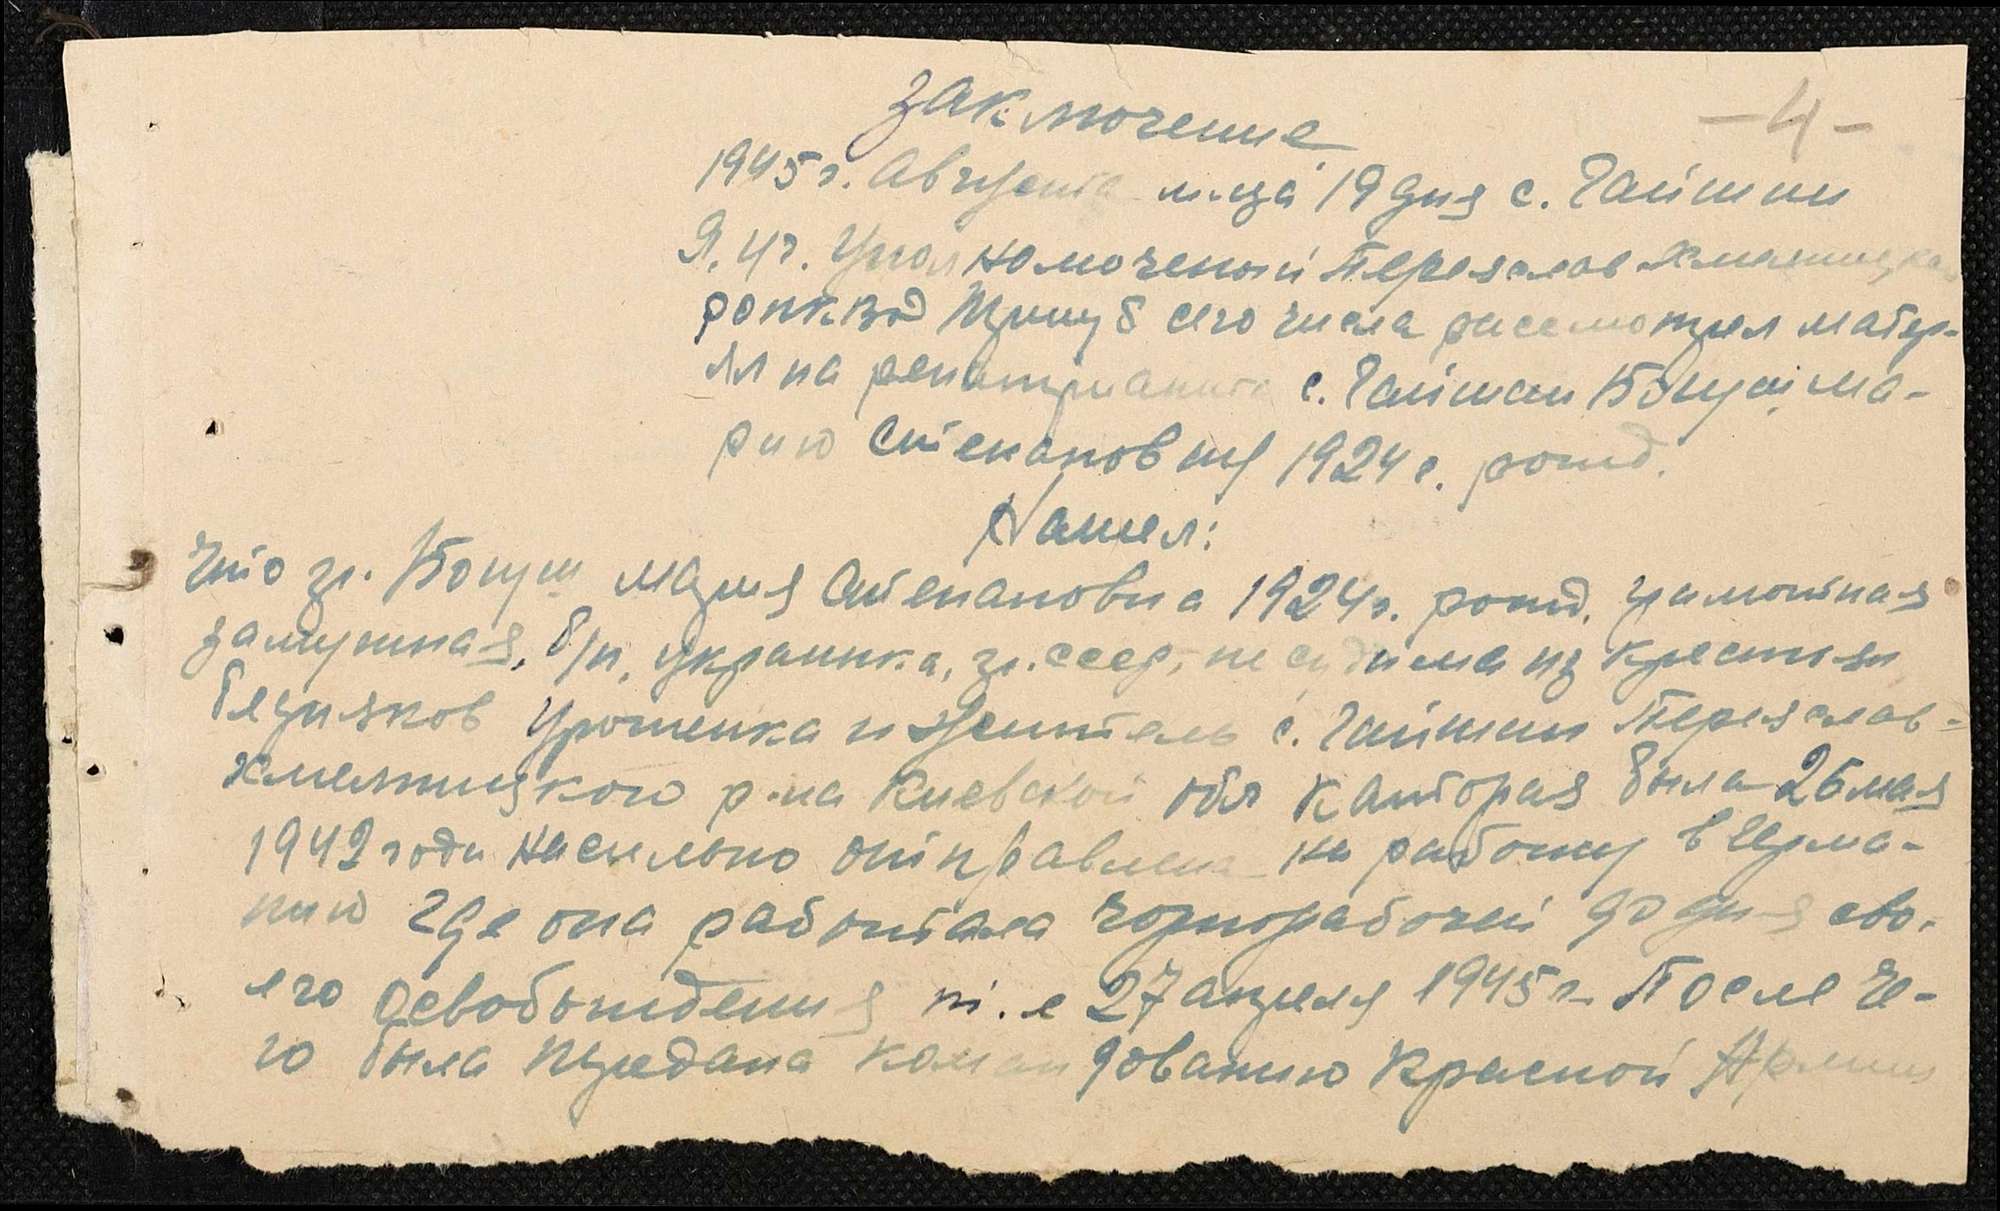 заключение
-4-
1945 г. Августа м-ца 19 дня с. Гайшин
Я, уч. Уполномоченый Переяслав Хмельницкая
РОНКВД сего числа рассмотрел матер-
ял на репатрианта с. Гайшин Богуш Ма-
рию Степановну 1924 г. рожд.
Нашел:
Что гр. Богуш Мария Степановна 1924 г. рожд. грамотная
замужная, б/п, украинка, гр. ссср, не судима из крестьян
бедняков уроженка и житель с. Гайшин Переяслав-
хмельницкого р-на Киевской обл каторая была 26 мая
1942 года насильно отправлена на работу в Герма-
нию где она работала чорнорабочей до дня сво-
его освобождения т. е 27 апреля 1945 г. После че-
го была передана командованию Красной Армии